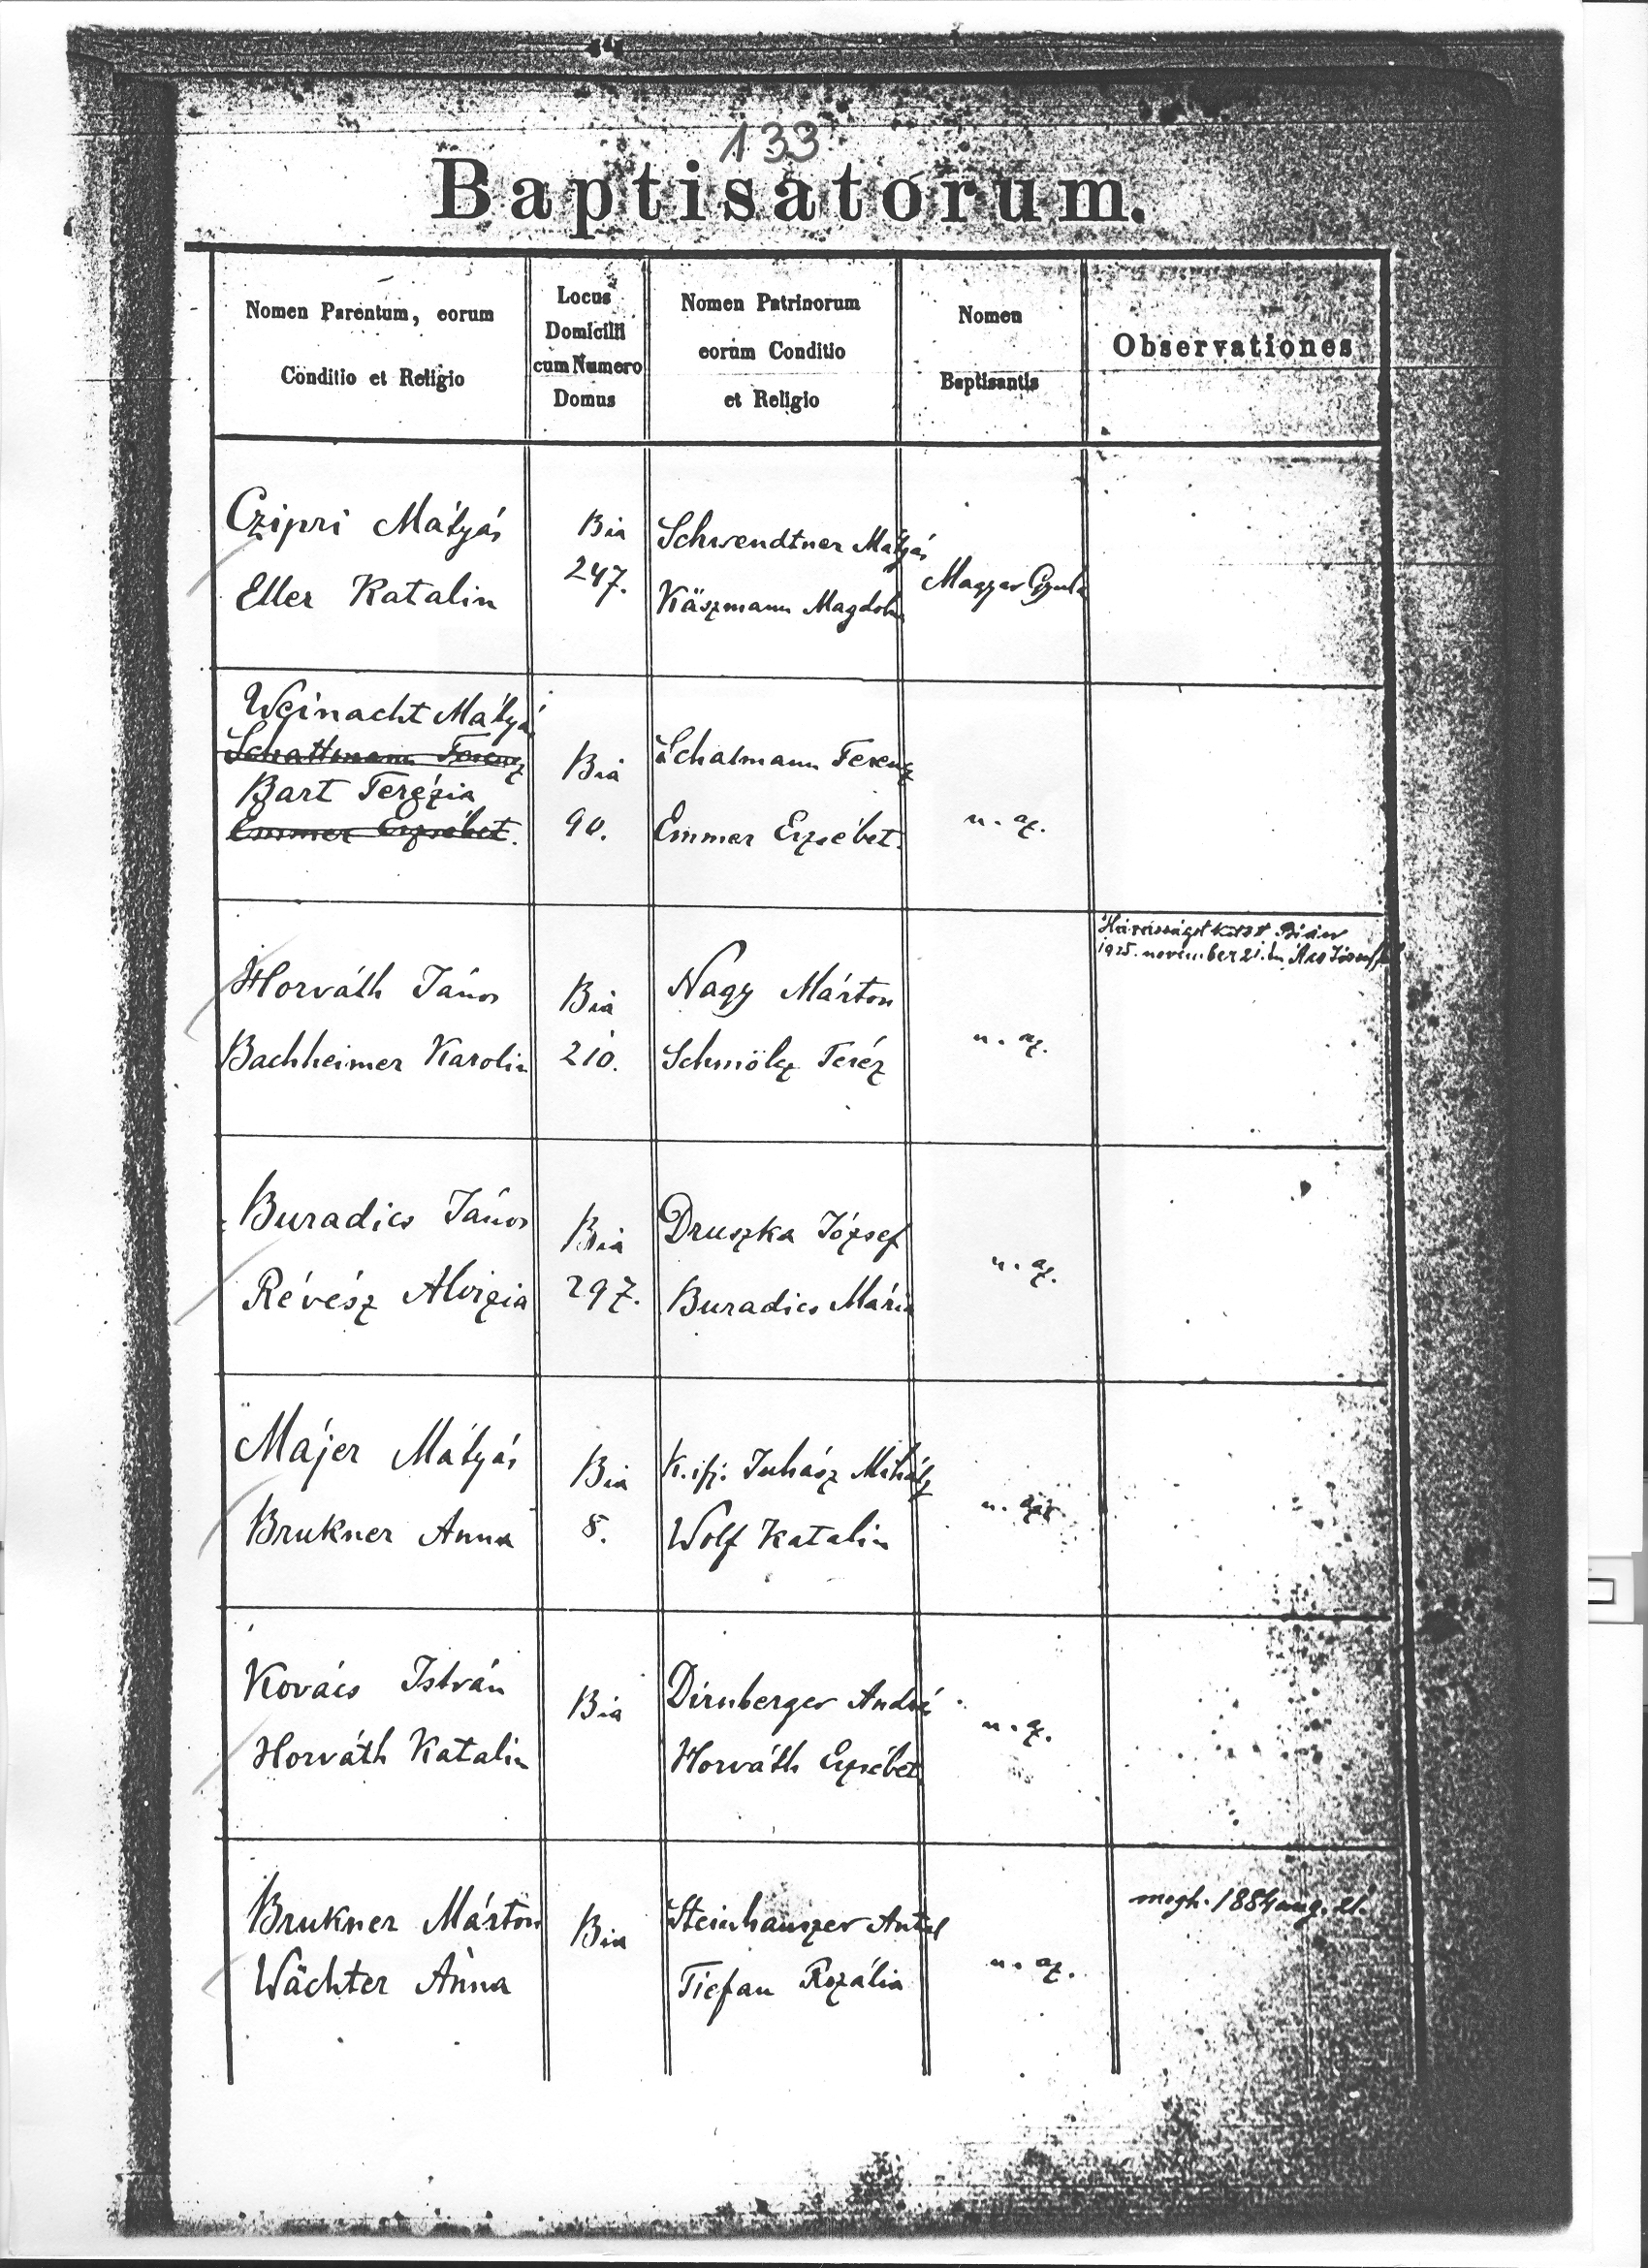 133
Baptisatorum.
Nomen Parentum, eorum
Conditio et Religio
Locus
Domicilii
cum Numero
Domus
Nomen Patrinorum
eorum Conditio
et Religio
Nomen
Baptisantis
Observationes
Czipri Mátyás
Eller Katalin
Bia
247.
Schwendtner Mátyás
Käszmann Magdolna
Magyar Gyula
Weinacht Mátyás
Schattmann Ferencz
Bart Terézia
Emmer Erzsébet.
Bia
90.
Schatmann Ferencz
Emmer Erzsébet.
u. az.
Horváth János
Bachheimer Karolin
Bia
210.
Nagy Márton
Schmölcz Teréz
u. az.
Házasságot kötött Bián
1925. november 21.én
Buradics János
Révész Alvizia
Bia
297.
Druszka József
Buradics Mária
u. az.
Májer Mátyás
Brukner Anna
Bia
8.
K. ifj. Juhász Mihály
Wolf Katalin
u. az.
Kovács István
Horváth Katalin
Bia
Dirnberger András
Horváth Erzsébet
u. az.
Brukner Márton
Wächter Anna
Bia
Steinhauszer Antal
Tiefan Rozália
u. az.
megh. 1884 aug. 21.